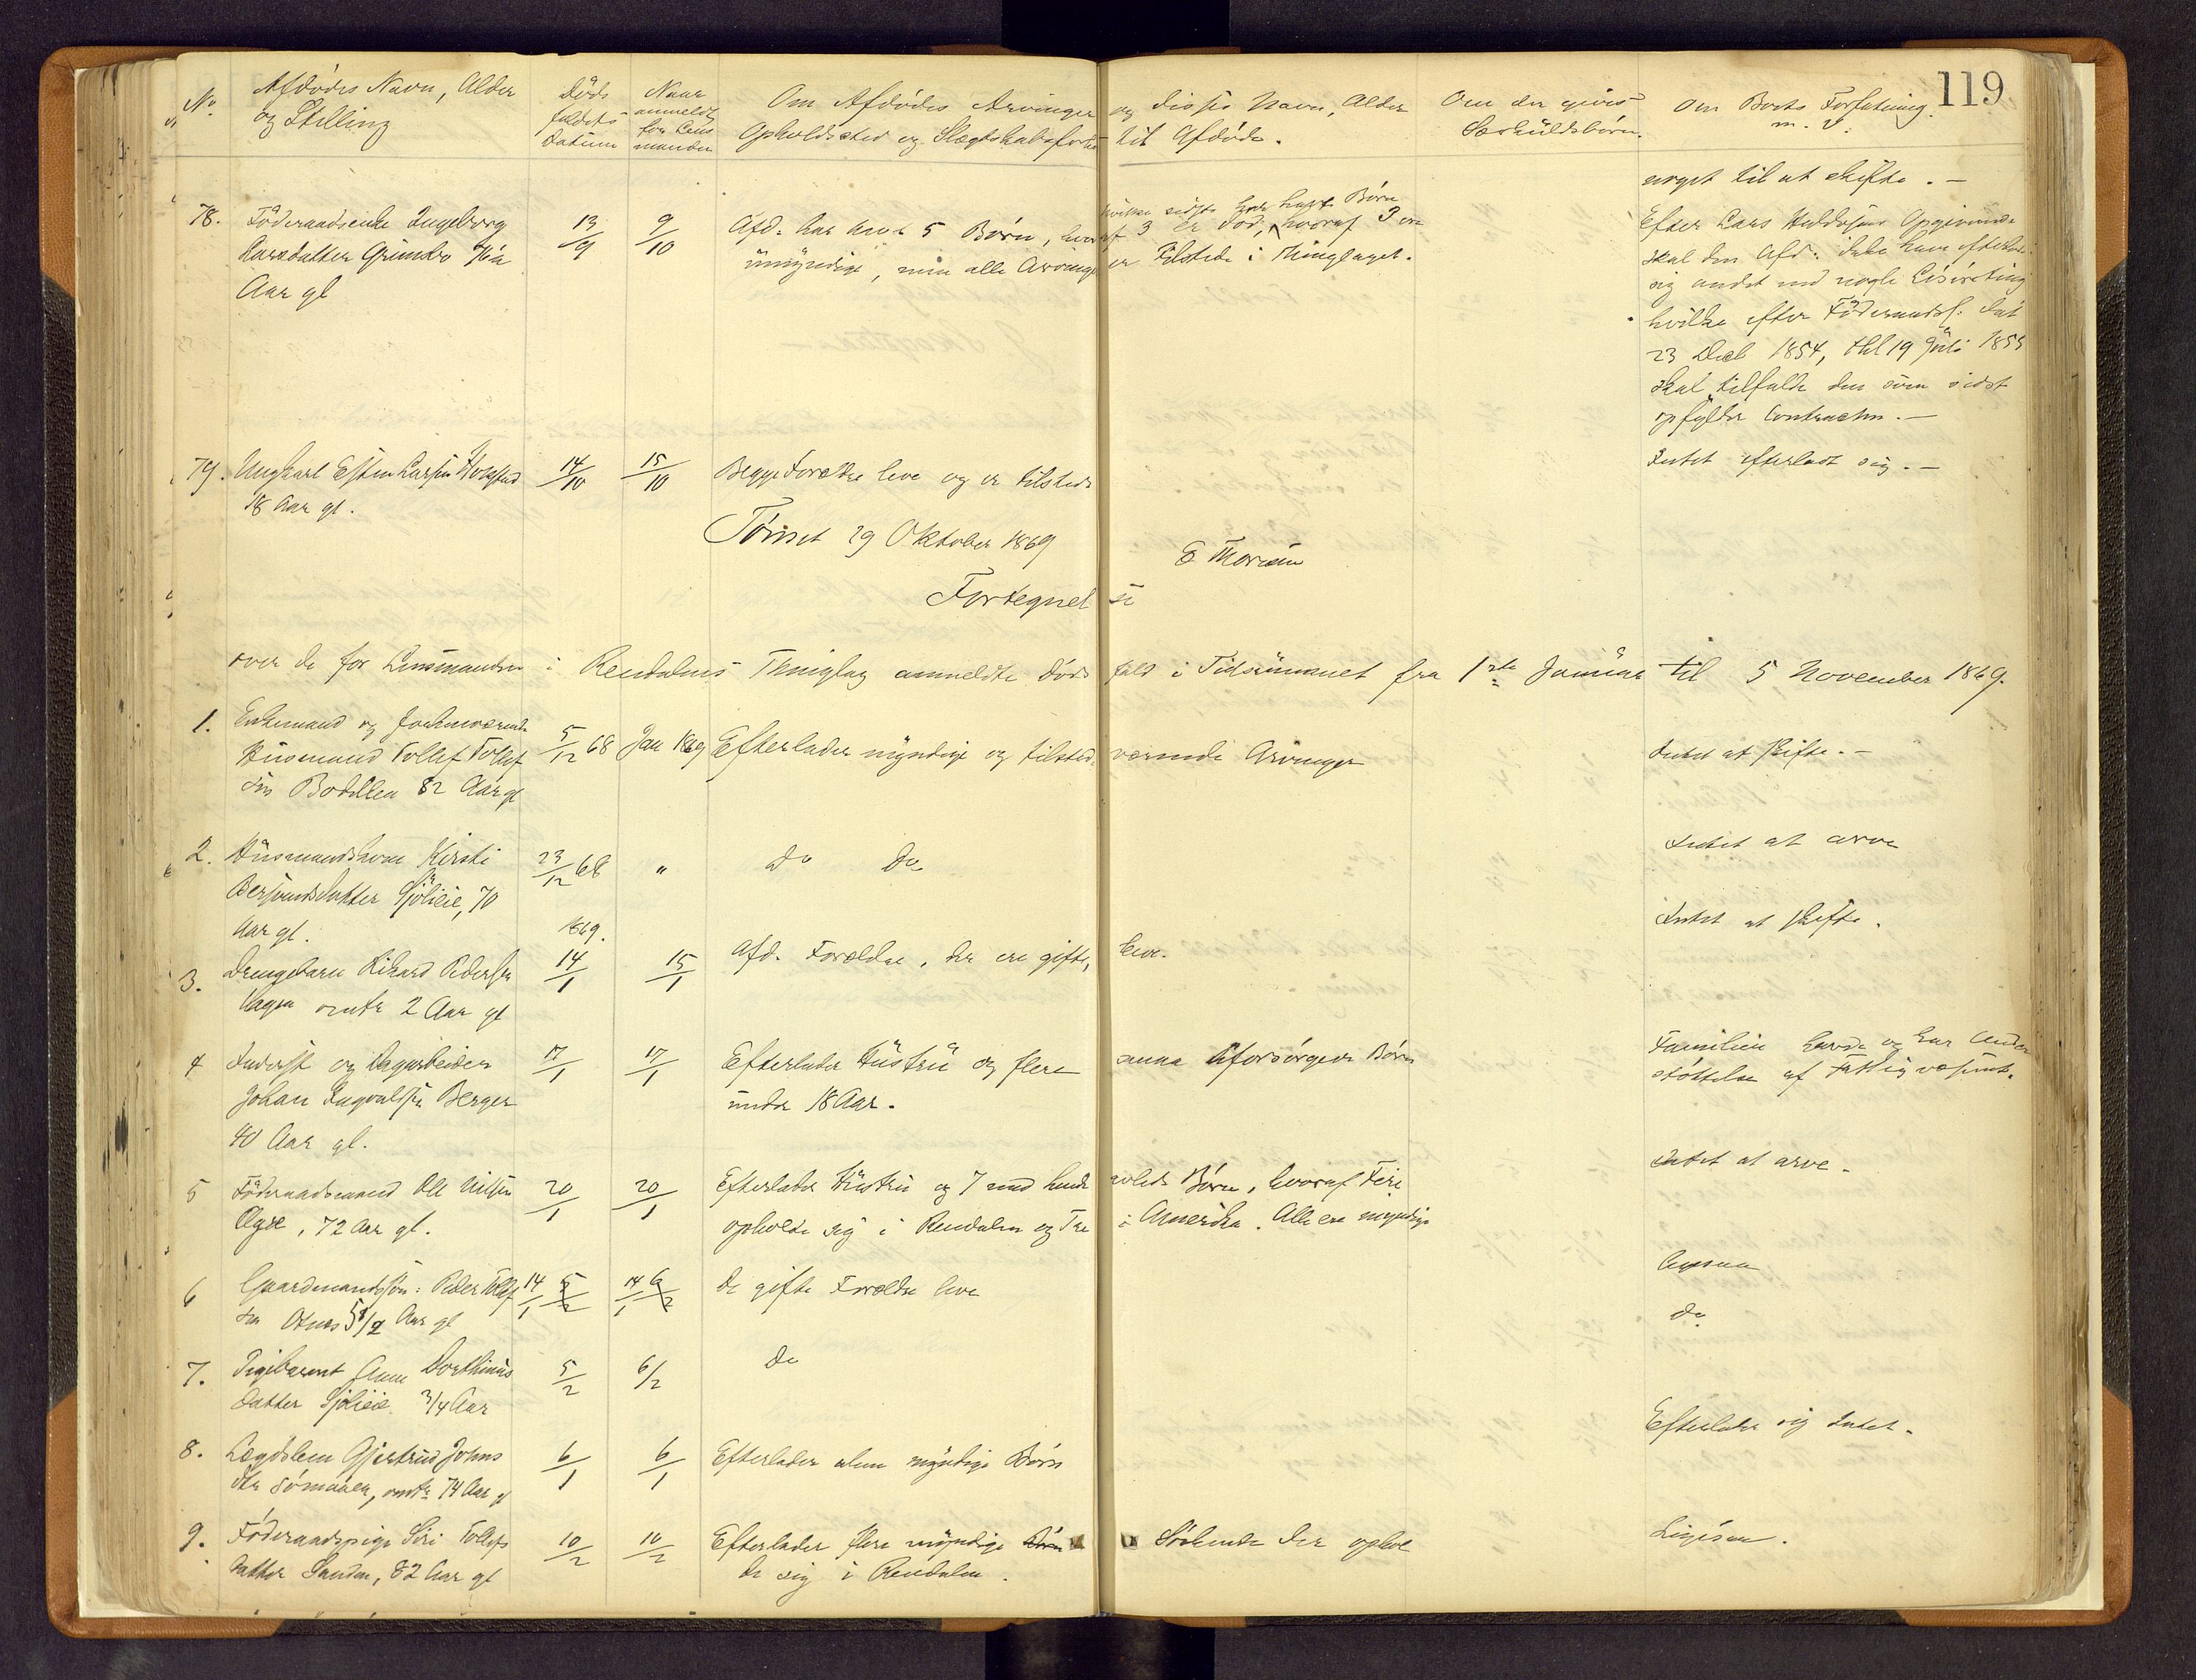 119
No. Afdødes Navn, Alder og Stilling
Døds faldets Datum
Naar anmeldt for Lens manden
Om Afdødes Arvinger og disses Navn, Alder
Opholdssted og Slægtskabsforh til Afdøde.
Om der gives Særkuldsbørn.
Om Boets Forfatning m. v.
noget til at skifte. —
78. Føderaadsenke Ingeborg
Larsdatter Grimsbo
Aar gl
13/9
9/10
Afd. har havt 5 Børn, hvoraf 3 er død, hvoraf 3 ere
hvilke sidste har havt Børn
umyndige, men alle Arvinger er tilstede i Thinglaget.
Efter Lars Opgivende
skal den Afd: ikke have efterladt
sig andet end nogle
hvilke efter Føderaads. dat
23 Decb 1854, thl 19 Juli 1855
skal tilfalde den som sidst
opfylder Contracten. —
79. Ungkarl Esten Larsen
18 Aar gl.
14/10
15/10
Begge Forældre leve og er tilstede
Intet efterladt sig. —
Tønset 29 Oktober 1869
E Thoresen
Fortegnelse
over de for Lensmanden i Rendalens Thinglag anmeldte Dødsfald i Tidsrummet fra 1ste Januar til 5 November 1869.
1. Enkemand og forhenværende
Husmand Tollef Tollef
sen 82 Aar gl
5/12 68
Jan 1869
Efterlader myndige og tilstedeværende Arvinger
Intet at skifte. —
2. Husmandskone Kirsti
Bersvendsdatter Sjølieie, 70
Aar gl.
23/12 68
"
do do
Intet at arve
1869.
3. Drengebarn Rikard Pedersen
Hagen omtr 2 Aar gl
14/1
15/1
Afd. Forældre, der ere gifte, leve.
Intet at skifte.
4 Inderst og Dagarbeider
Johan Ingvaldsen Berger
40 Aar gl.
17/1
17/1
Efterlader Hustru og flere smaa uforsørgede Børn
under 18 Aar.
Familien havde og har Under
støttelse af Fattigvæsenet.
5 Føderaadsmand Ole Nilsen
72 Aar gl.
20/1
20/1
Efterlader Hustru og 7 med hende avlede Børn, hvoraf Fire
opholde sig i Rendalen og Tre i Amerika. Alle ere myndige
Intet at arve.
6 Gaardmandssøn: Peder Tollef
sen Otnes 5 1/2 Aar gl
14/1 5/2
14/1 6/2
De gifte Forældre leve
Ligesaa
7. Pigebarnet Anne Dorthinus
datter Sjølieie 3/4 Aar
5/2
6/2
do
do
8. Lægdslem Gjertrud Johns
dtr Sømaaen, omtr 74 Aar gl
6/1
6/1
Efterlader alene myndige Børn
Efterlader sig Intet.
9. Føderaadspige Siri Tollefs
datter Sanden, 82 Aar gl
10/2
10/2
Efterlader flere myndige Børn Søskende der ophol
de sig i Rendalen.
Ligesaa.